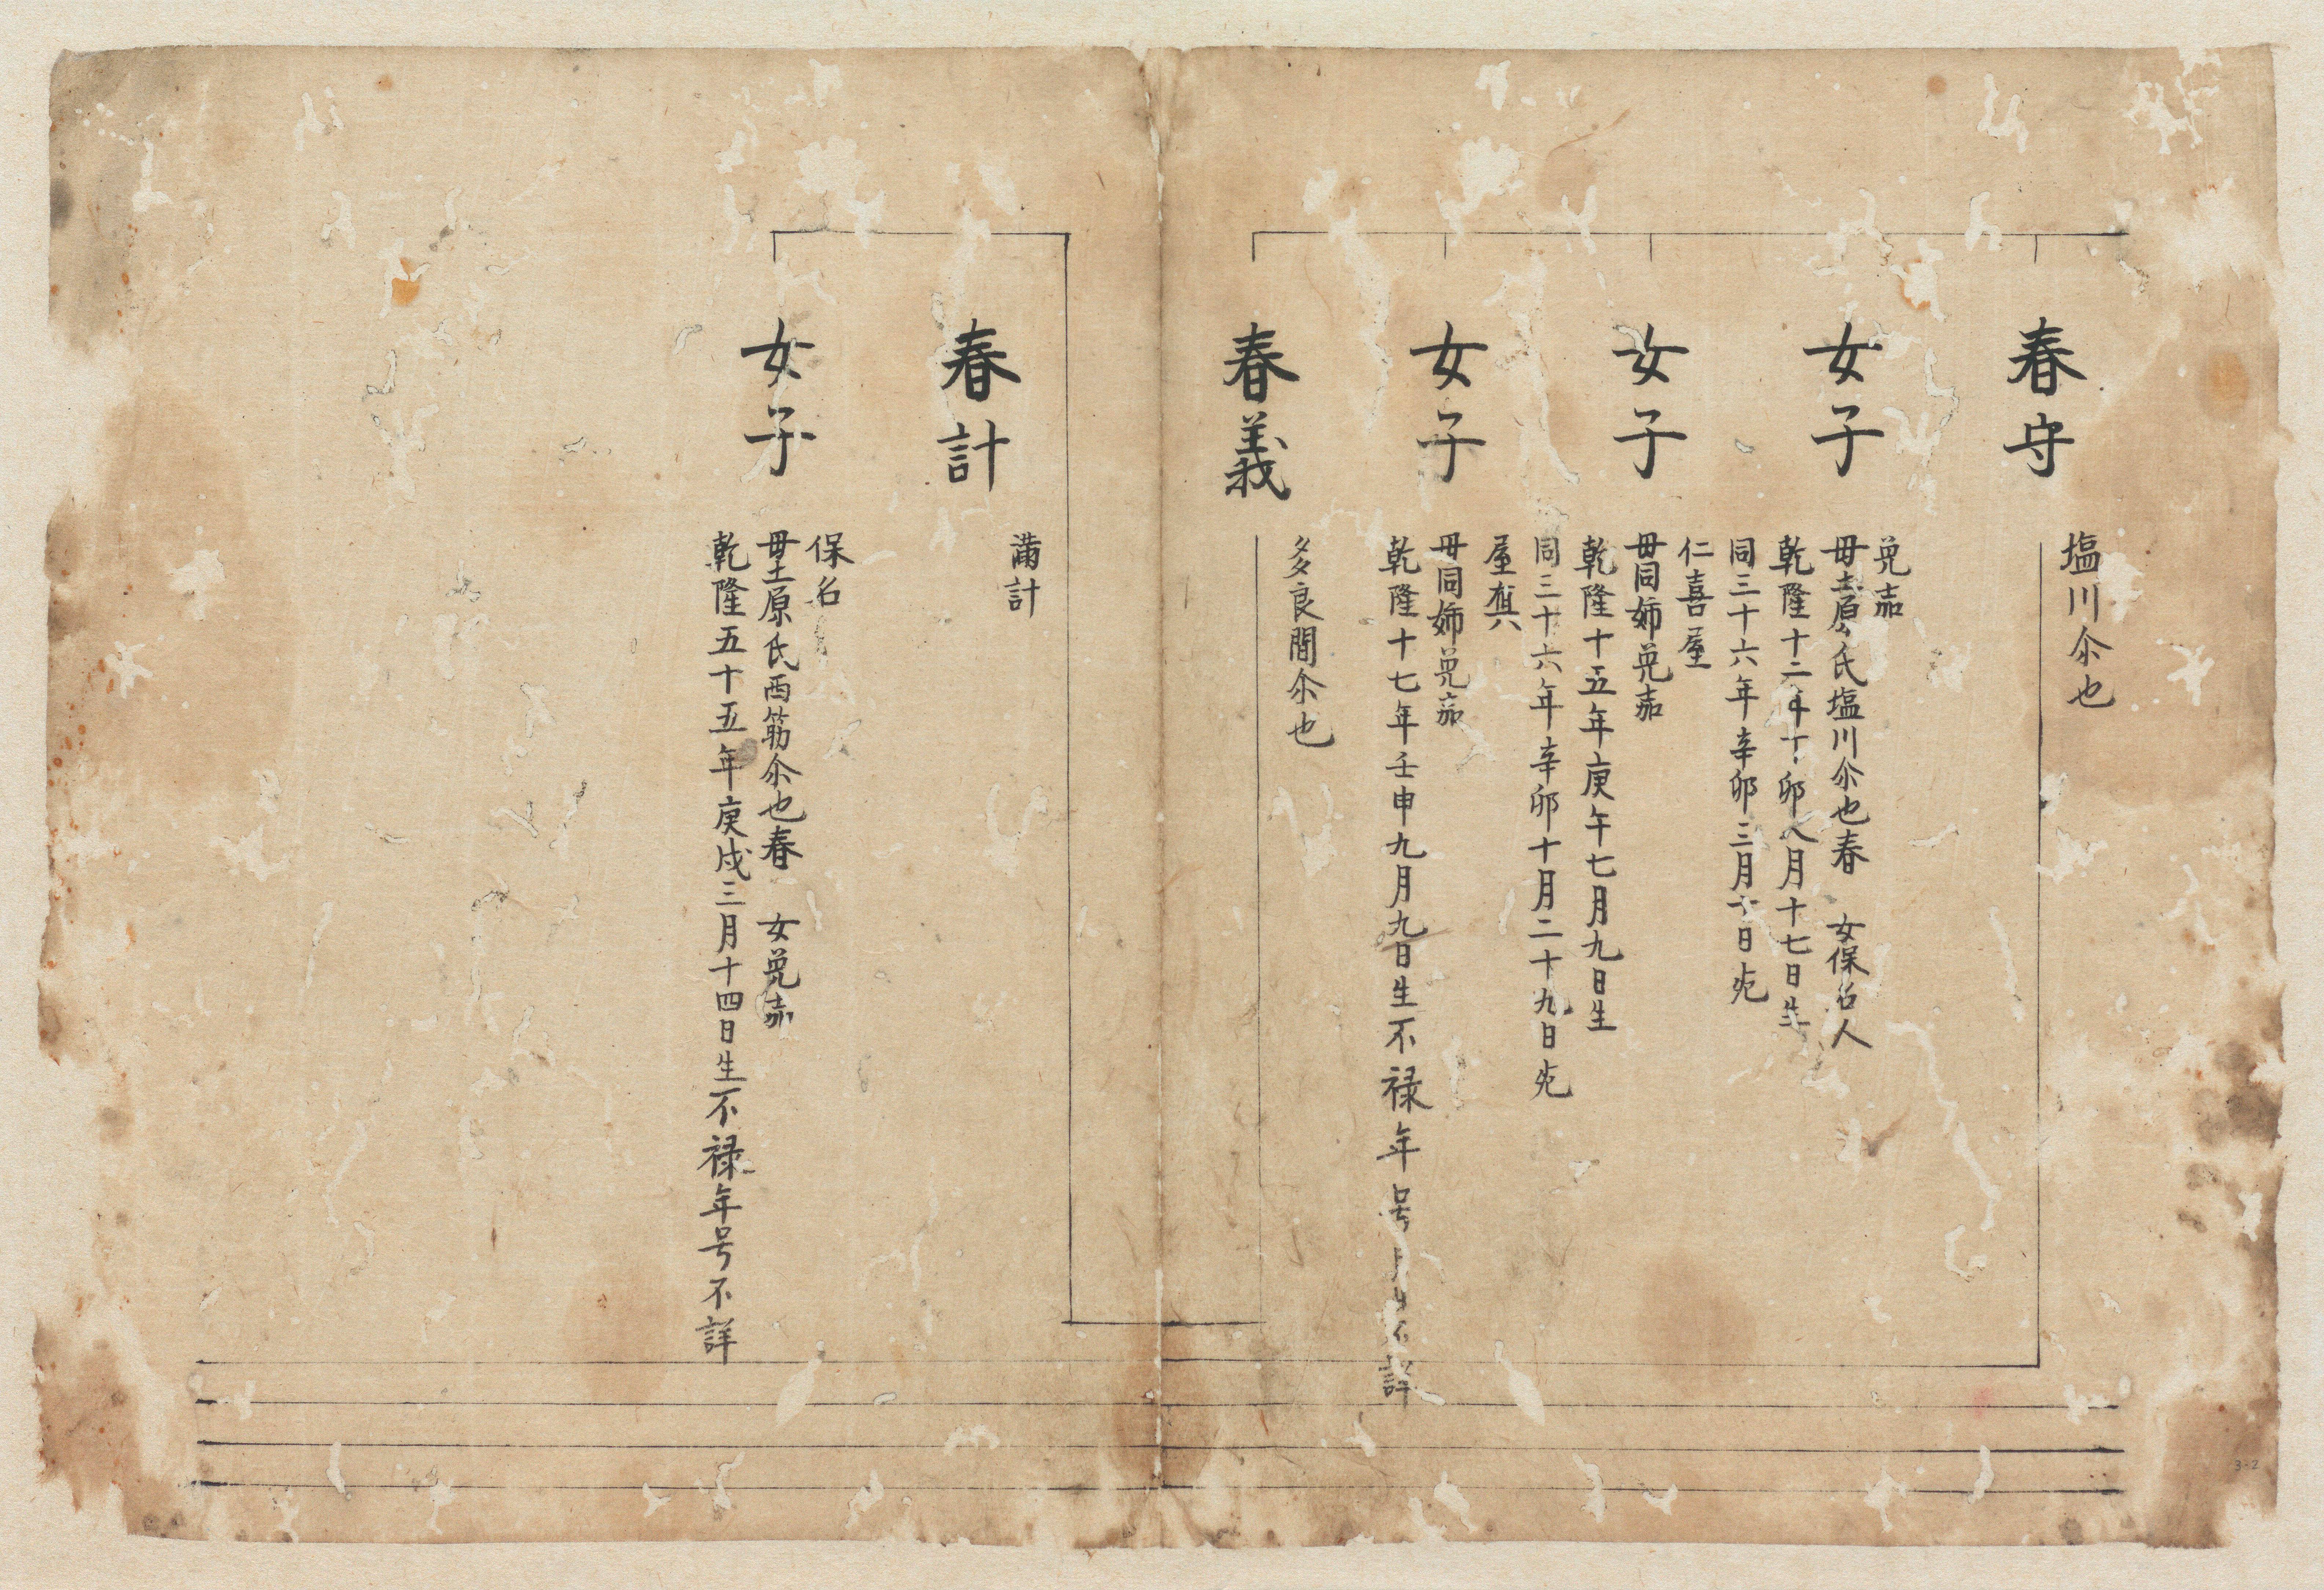 春守
塩川尒也
女子
兑茄
毋土原氏塩川尒也春 女保名人
乾隆十二年丁卯八月十七日生
同三十六年辛卯三月 日死
女子
仁喜屋
毋同姉兑茄
乾隆十五年庚午七月九日生
同三十六年辛卯十月二十九日死
女子
屋真
毋同姉兑茄
乾隆十七年壬申九月九日生不禄年号月日不詳
春義
多良間尒也
春計
満計
女子
保名
毋土原氏西筋尒也春 女兑茄
乾隆五十五年庚戌三月十四日生不禄年号不詳
3-2